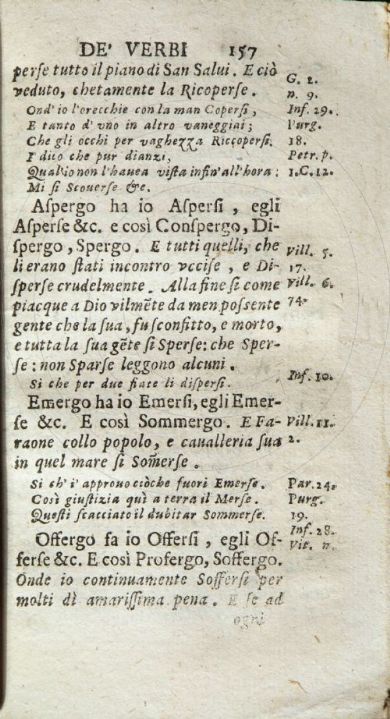 DE' VERBI 157
perse tutto il piano di San Salui. E ciò
veduto, chetamente la Ricoperse.
G. 2.
n. 9.
Ond'io l'orecchie con la man Copersi,
Inf. 29.
E tanto d'vno in altro vaneggiai;
Purg.
Che gli occhi per vaghezza Ricopersi.
18.
I' dico che pur dianzi,
Petr. p.
Qual'io non l'hauea vista infin'all'hora:
1. C. 12.
Mi si Scouerse &c.
Aspergo ha io Aspersi, egli
Asperse &c. e così Conspergo, Di-
spergo, Spergo. E tutti quelli, che
Vill. 5.
li erano stati incontro vccise, e Di-
17.
sperse crudelmente. Alla fine si come
Vill. 6.
piacque a Dio vilmẽte da men possente
74.
gente che la sua, fu sconfitto, e morto,
e tutta la sua gẽte si Sperse: che Sper-
se: non Sparse leggono alcuni.
Si che per due fiate li dispersi.
Inf. 10.
Emergo ha io Emersi, egli Emer-
se &c. E così Sommergo. E Fa-
Vill. 11.
raone collo popolo, e caualleria sua
2.
in quel mare si Som̃erse.
Si ch'i' approuo ciòche fuori Emerse.
Par. 24.
Così giustizia quì a terra il Merse.
Purg.
Questi scacciato il dubitar Sommerse.
19.
Inf. 28.
Offergo fa io Offersi, egli Of-
Vit. n.
ferse &c. E così Profergo, Soffergo.
Onde io continuamente Soffersi per
molti dì amarissima pena. E se ad
ogni